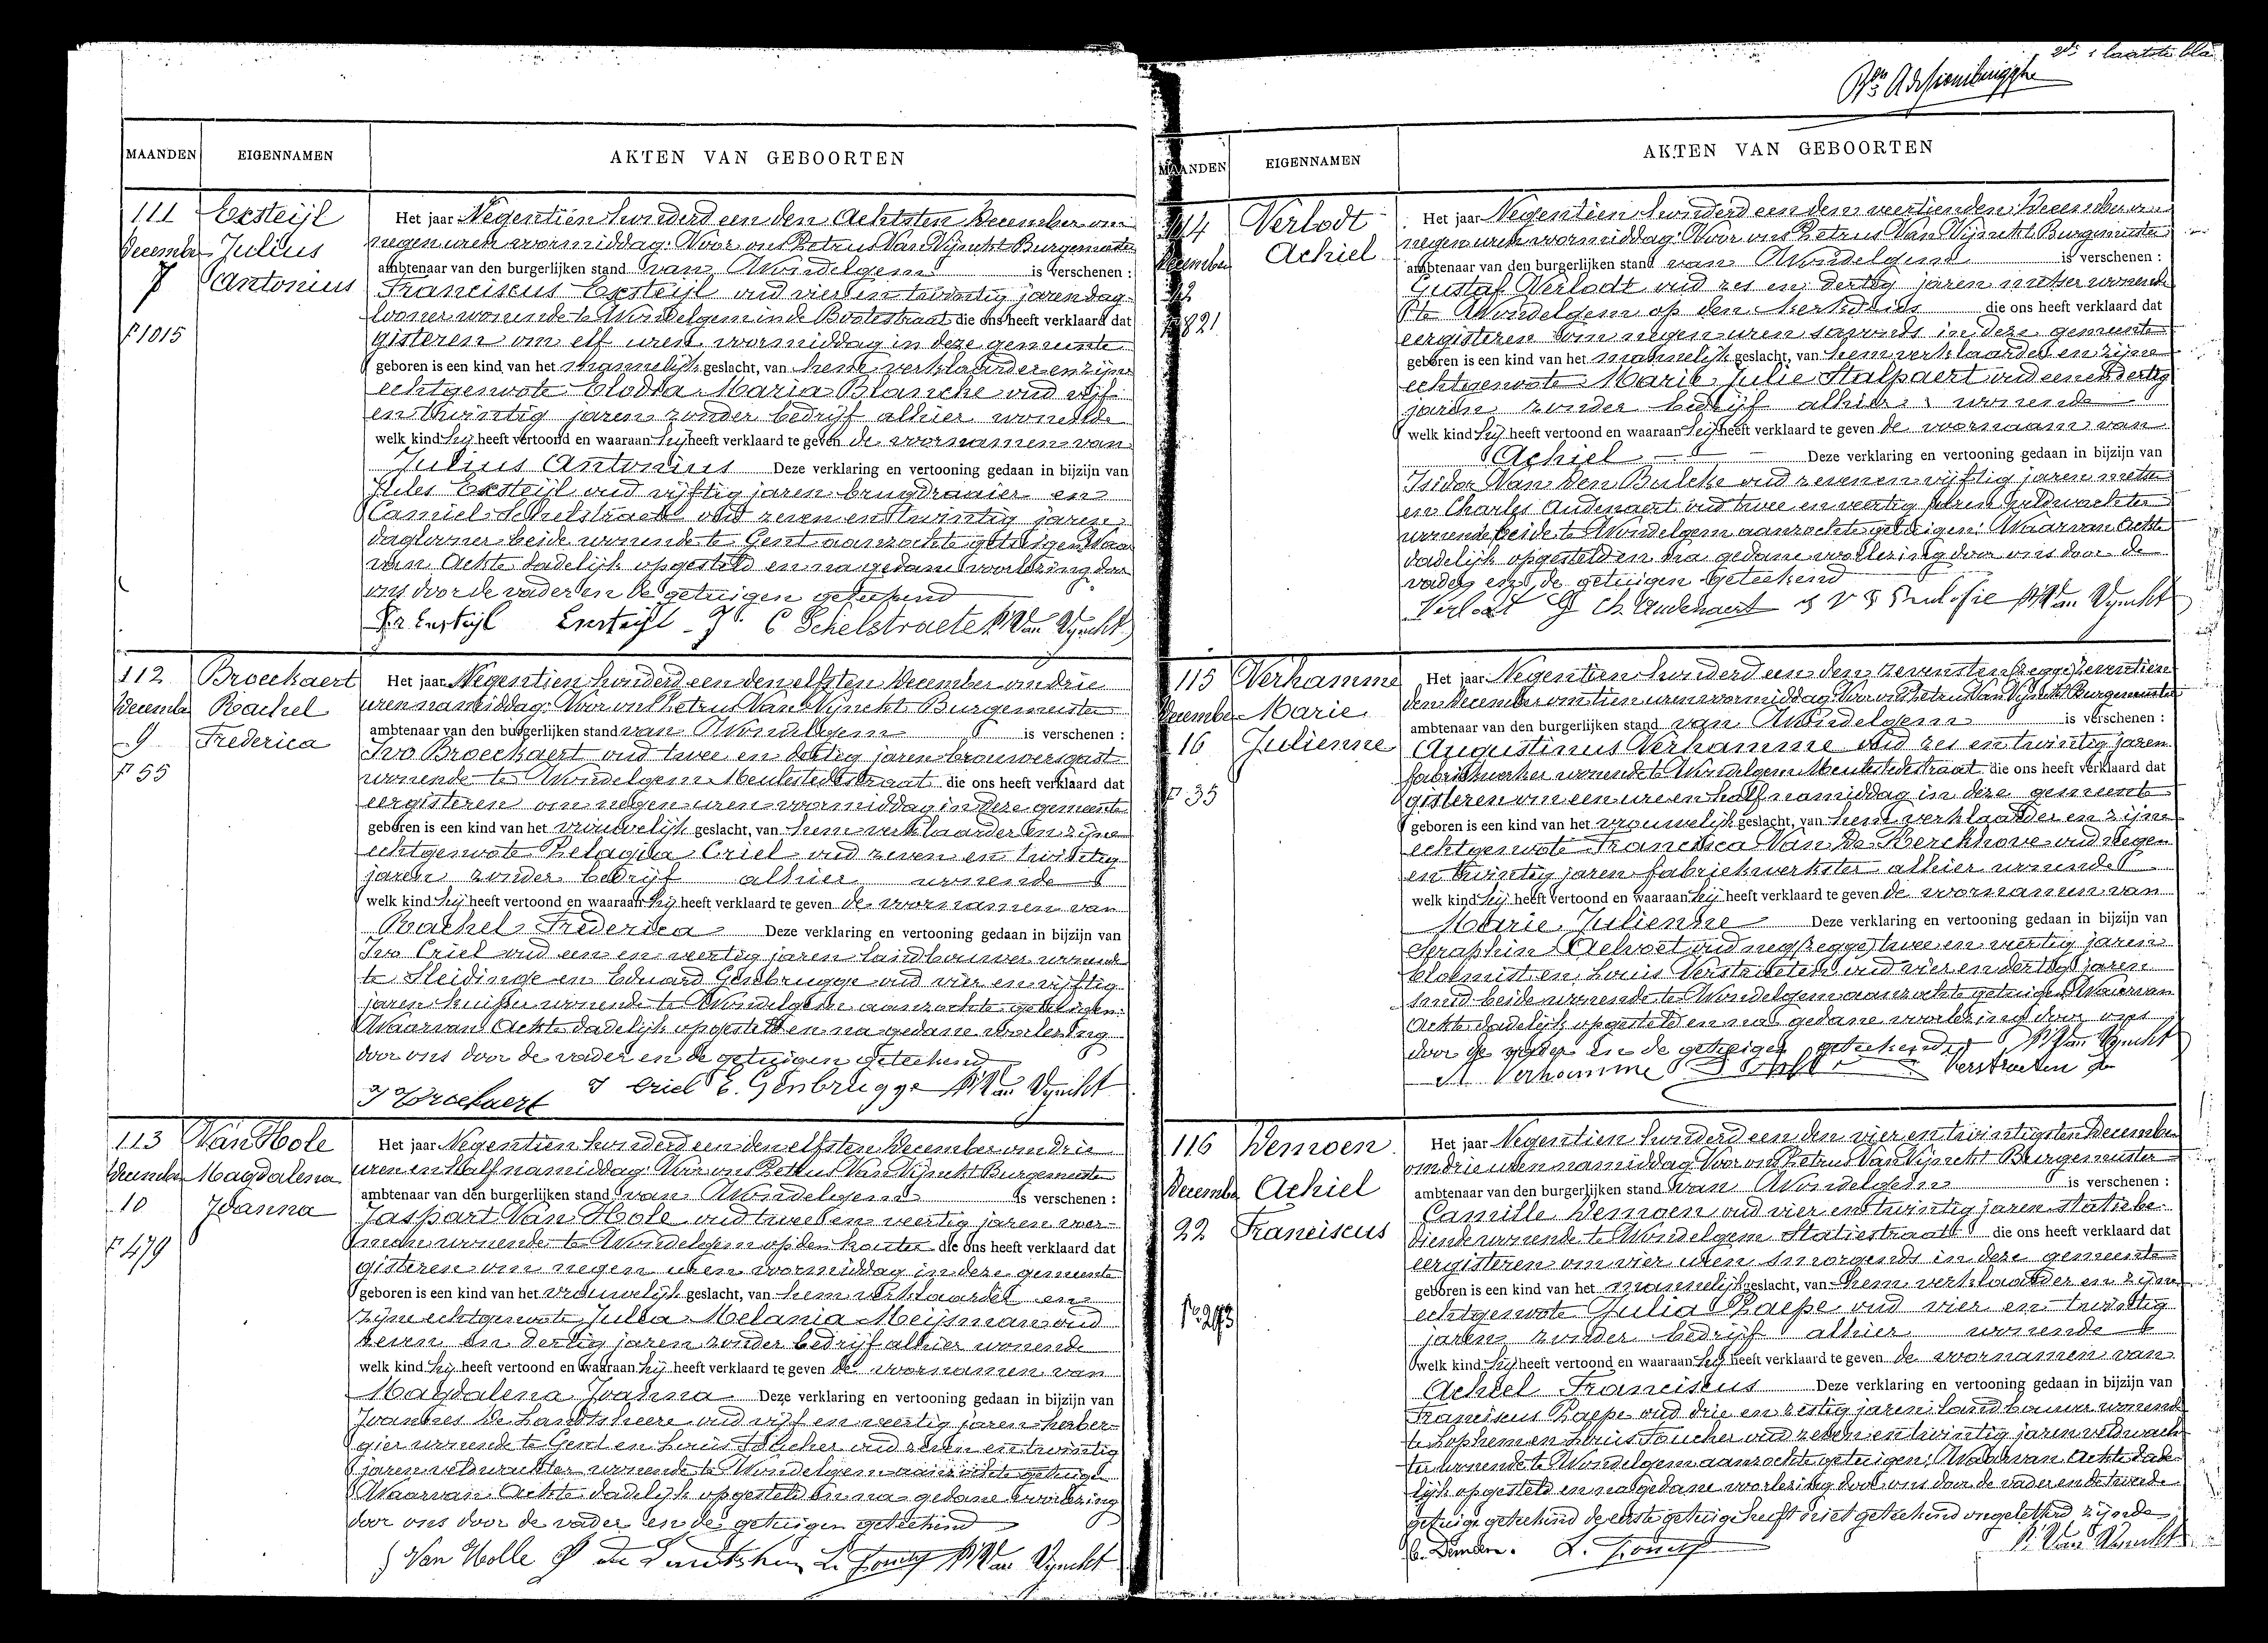 2de & laatste bla
MAANDEN EIGENNAMEN AKTEN VAN GEBOORTEN
111
December
7
F 1015
Exsteijl
Julius
Antonius
Het jaar Negentien honderd een den Achtsten December om
negen uren voormiddag: Voor ons Petrus Van Vijnckt Burgemeester
ambtenaar van den burgerlijken stand van Wondelgem is verschenen :
Franciscus Exsteijl oud vier en twintig jaren dag-
looner wonende te Wondelgem in de Botestraat die ons heeft verklaard dat
gisteren om elf uren voormiddag in deze gemeente
geboren is een kind van het mannelijk geslacht, van hem verklaarder en zijne
echtgenoote Clodia Maria Blanche oud vijf
en twintig jaren zonder bedrijf alhier wonende
welk kind hij heeft vertoond en waaraan hij heeft verklaard te geven de voornamen van
Julius Antonius Deze verklaring en vertooning gedaan in bijzijn van
Jules Exsteijl oud vijftig jaren brugdraaier en
Camiel Schelstraete oud zeven en twintig jaren
daglooner beide wonende te Gent aanzochte getuigen Waar
van Ackte dadelijk opgesteld en na gedane voorlezing door
ons door de vader en de getuigen geteekend
C Schelstraete P. Van Vynckt
112
December
9
F 55
Broeckaert
Rachel
Frederica
Het jaar Negentien honderd een den elfsten December om drie
uren namiddag: Voor ons Petrus Van Vijnckt Burgemeester
ambtenaar van den burgerlijken stand van Wondelgem is verschenen :
Ivo Broeckaert oud twee en dertig jaren brouwersgast
wonende te Wondelgem Meulestedestraat die ons heeft verklaard dat
eergisteren om negen uren voormiddag in deze gemeente
geboren is een kind van het vrouwelijk geslacht, van hem verklaarder en zijne
echtgenoote Pelagia Criel oud zeven en twintig
jaren zonder bedrijf alhier wonende
welk kind hij heeft vertoond en waaraan hij heeft verklaard te geven de voornamen van
Rachel Frederica Deze verklaring en vertooning gedaan in bijzijn van
Ivo Criel oud een en veertig jaren landbouwer wonende
te Sleidinge en Eduard Genbrugge oud vier en vijftig
jaren kuiper wonende te Wondelgem aanzochte getuigen:
Waarvan Ackte dadelijk opgesteld en na gedane voorlezing
door ons door de vader en de getuigen geteekend
I Broekaert I Criel E. Genbrugge P. Van Vynckt
113
December
10
F 479
Van Hole
Magdalena
Joanna
Het jaar Negentien honderd een den elfsten December om drie
uren en half namiddag: Voor ons Petrus Van Vijnckt Burgemeester
ambtenaar van den burgerlijken stand van Wondelgem is verschenen :
Jaspart Van Hole oud twee en veertig jaren voer-
man wonende te Wondelgem op den kouter die ons heeft verklaard dat
gisteren om negen uren voormiddag in deze gemeente
geboren is een kind van het vrouwelijk geslacht, van hem verklaarder en
zijne echtgenoote Julia Melania Meijsman oud
zeven en dertig jaren zonder bedrijf alhier wonende
welk kind hij heeft vertoond en waaraan hij heeft verklaard te geven de voornamen van
Magdalena Joanna Deze verklaring en vertooning gedaan in bijzijn van
Joannes De Landtsheere oud vijf en veertig jaren herber-
gier wonende te Gent en Louis Foucher oud zeven en twintig
jaren veldwachter wonende te Wondelgem aanzochte getuigen
Waarvan Ackte dadelijk opgesteld en na gedane voorlezing
door ons door de vader en de getuigen geteekend
J Van Holle P. Van Vynckt
MAANDEN EIGENNAMEN AKTEN VAN GEBOORTEN
114
December
12
F 821
Verlodt
Achiel
Het jaar Negentien honderd een den veertienden December om
negen uren voormiddag: Voor ons Petrus Van Vijnckt Burgemeester
ambtenaar van den burgerlijken stand van Wondelgem is verschenen :
Gustaf Verlodt oud zes en dertig jaren metser wonende
te Wondelgem op den die ons heeft verklaard dat
eergisteren om negen uren savonds in deze gemeente
geboren is een kind van het mannelijk geslacht, van hem verklaarder en zijne
echtgenoote Marie Julie Stalpaert oud een en dertig
jaren zonder bedrijf alhier wonende
welk kind hij heeft vertoond en waaraan hij heeft verklaard te geven de voornaam van
Achiel Deze verklaring en vertooning gedaan in bijzijn van
Isidor Van Den Bulcke oud zeven en vijftig jaren metser
en Charles Audenaert oud twee en veertig jaren veldwachter
wonende beide te Wondelgem aanzochte getuigen: Waarvan Ackte
dadelijk opgesteld en na gedane voorlezing door ons door de
vader en de getuigen geteekend
Verlodt G Ch Audenaert P. Van Vynckt
115
December
16
F 35
Verhamme
Marie
Julienne
Het jaar Negentien honderd een den zevensten (zegge) zeventien
den December om tien uren voormiddag: Voor ons Petrus Van Vijnckt Burgemeester
ambtenaar van den burgerlijken stand van Wondelgem is verschenen :
Augustinus Verhamme oud zes en twintig jaren
fabriekwerker wonende te Wondelgem Meulestedestraat die ons heeft verklaard dat
gisteren om een ure en half namiddag in deze gemeente
geboren is een kind van het vrouwelijk geslacht, van hem verklaarder en zijne
echtgenoote Francisca Van De Kerckhove oud negen
en twintig jaren fabriekwerkster alhier wonende
welk kind hij heeft vertoond en waaraan hij heeft verklaard te geven de voornamen van
Marie Julienne Deze verklaring en vertooning gedaan in bijzijn van
Seraphin Aelvoet oud neg (zegge) twee en veertig jaren
bloemist en Louis Verstraeten oud vier en dertig jaren
smid beide wonende te Wondelgem aanzochte getuigen Waarvan
Ackte dadelijk opgesteld en na gedane voorlezing door ons
door de vader en de getuigen geteekend P. Van Vynckt
A Verhamme Verstraeten
116
December
22
No 293
Demoen
Achiel
Franciscus
Het jaar Negentien honderd een den vier en twintigsten December
om drie uren namiddag Voor ons Petrus Van Vijnckt Burgemeester
ambtenaar van den burgerlijken stand van Wondelgem is verschenen :
Camille Demoen oud vier en twintig jaren statiebe-
diende wonende te Wondelgem Statiestraat die ons heeft verklaard dat
eergisteren om vier uren smorgends in deze gemeente
geboren is een kind van het mannelijk geslacht, van hem verklaarder en zijne
echtgenoote Julia Paepe oud vier en twintig
jaren zonder bedrijf alhier wonende
welk kind hij heeft vertoond en waaraan hij heeft verklaard te geven de voornamen van
Achiel Franciscus Deze verklaring en vertooning gedaan in bijzijn van
Franciscus Paepe oud drie en zestig jaren landbouwer wonende
te Lophem en Louis Foucher oud zeven en twintig jaren veldwach-
ter wonende te Wondelgem aanzochte getuigen: Waarvan Ackte dade-
lijk opgesteld en na gedane voorlezing door ons door de vader en de tweede
getuige geteekend de eerste getuige heeft niet geteekend ongeletterd zijnde
P. Van Vynckt